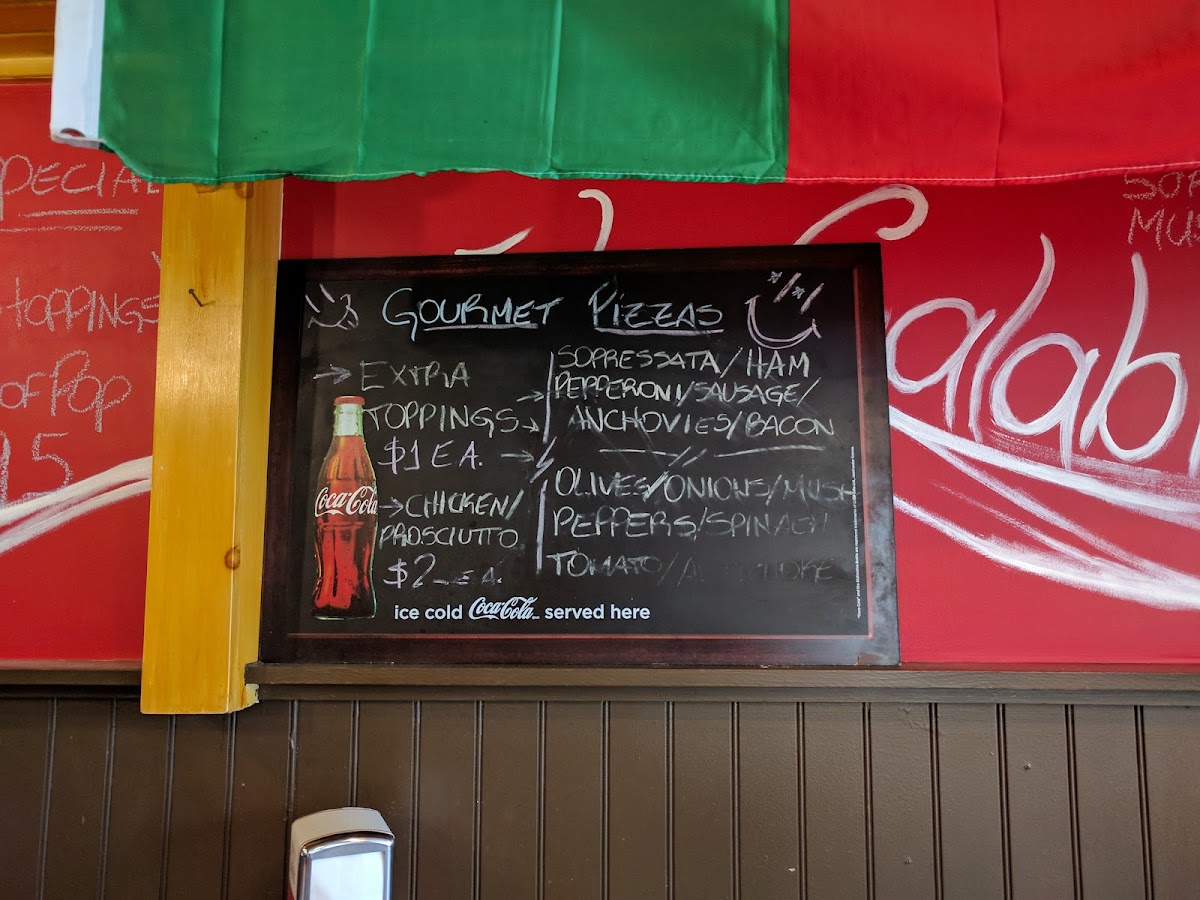 SPECIAL
TOPPINGS
OF POP
15
GOURMET PIZZAS
→ EXTRA
TOPPINGS →
$1 EA. →
→ CHICKEN/
PROSCIUTTO
$2 EA.
SOPRESSATA/HAM
PEPPERONI/SAUSAGE/
ANCHOVIES/BACON
OLIVES/ONIONS/MUSH
PEPPERS/SPINACH
TOMATO/
Coca-Cola
ice cold Coca-Cola served here
Calab